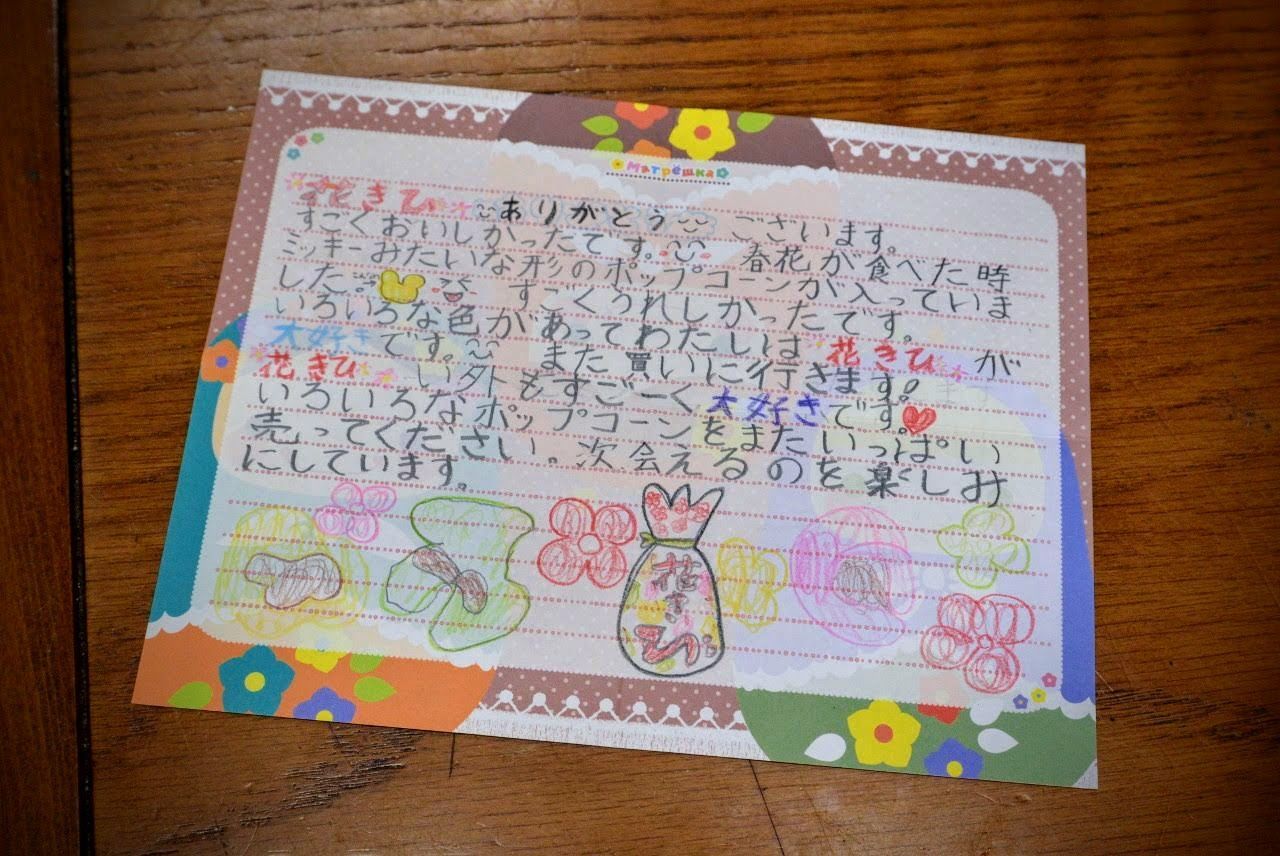 Матрёшка
花きび ありがとう ございます。
すごくおいしかったです。 春花が食べた時
ミッキーみたいな形のポップコーンが入っていま
した すごくうれしかったです。
いろいろな色があってわたしは 花きび が
大好きです。 また買いに行きます。
花きび い外もすごーく大好きです。
いろいろなポップコーンをまたいっぱい
売ってください。次会えるのを楽しみ
にしています。
花きび